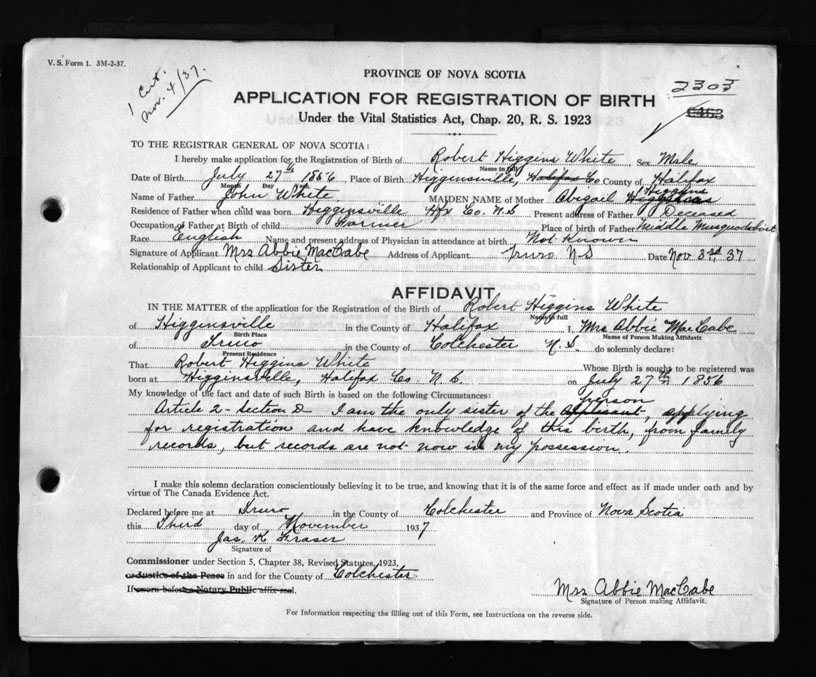 V. S. Form 1. 3M-2-37.
1 Cert.
Nov. 4/37.
PROVINCE OF NOVA SCOTIA
2303
APPLICATION FOR REGISTRATION OF BIRTH
Under the Vital Statistics Act, Chap. 20, R. S. 1923
TO THE REGISTRAR GENERAL OF NOVA SCOTIA:
I hereby make application for the Registration of Birth of Robert Higgins White, Sex Male
Name in full
Date of Birth July 27th 1856, Place of Birth Higginsville, Halifax Co County of Halifax
Month Day
Higgins
Name of Father John White MAIDEN NAME of Mother Abigail
Residence of Father when child was born Higginsville Hfx Co. N.S Present address of Father Deceased
Occupation of Father at Birth of child Farmer Place of birth of Father Middle Musquodoboit
Race English Name and present address of Physician in attendance at birth Not Known
Signature of Applicant Mrs Abbie MacCabe Address of Applicant Truro N.S Date Nov 3rd, 37
Relationship of Applicant to child Sister
AFFIDAVIT
IN THE MATTER of the application for the Registration of the Birth of Robert Higgins White
Name in full
of Higginsville in the County of Halifax I, Mrs Abbie MacCabe
Birth Place Name of Person Making Affidavit
of Truro in the County of Colchester N.S. do solemnly declare:
Present Residence
That Robert Higgins White Whose Birth is sought to be registered was
born at Higginsville, Halifax Co. N.S. on July 27th 1856
My knowledge of the fact and date of such Birth is based on the following Circumstances:
person
Article 2 - Section D I am the only sister of the Applicant, applying
for registration and have knowledge of this birth, from family
records, but records are not now in my possession.
I make this solemn declaration conscientiously believing it to be true, and knowing that it is of the same force and effect as if made under oath and by
virtue of The Canada Evidence Act.
Declared before me at Truro in the County of Colchester and Province of Nova Scotia
this Third day of November 1937
Jas. K Fraser
Signature of
Commissioner under Section 5, Chapter 38, Revised Statutes, 1923,
or Justice of the Peace in and for the County of Colchester
If sworn before a Notary Public affix seal.
Mrs Abbie MacCabe
Signature of Person making Affidavit.
For Information respecting the filling out of this Form, see Instructions on the reverse side.